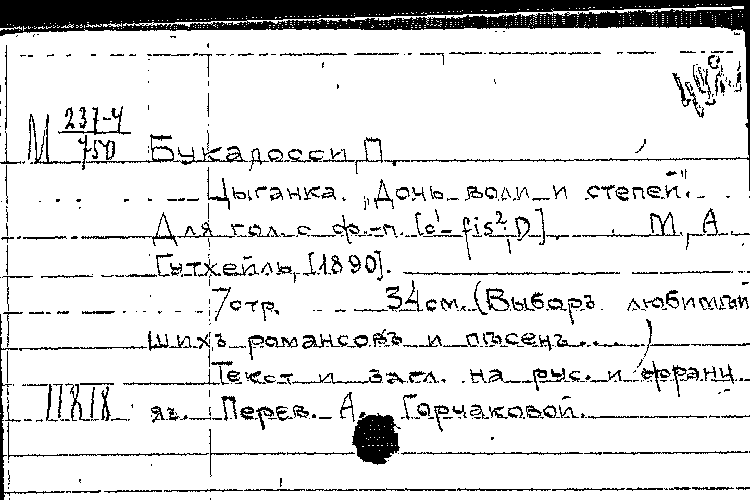 М 237-4/750 Букалосси, П.
Цыганка. „Дочь воли и степей".
Для гол. с ф.-п. [c¹-fis²; D]. М., А.
Гутхейль, [1890].
7 стр. 34 см. (Выборъ любимѣй
шихъ романсовъ и пѣсенъ....)
Текст и загл. на рус. и франц.
11818 яз. Перев. А. Горчаковой.